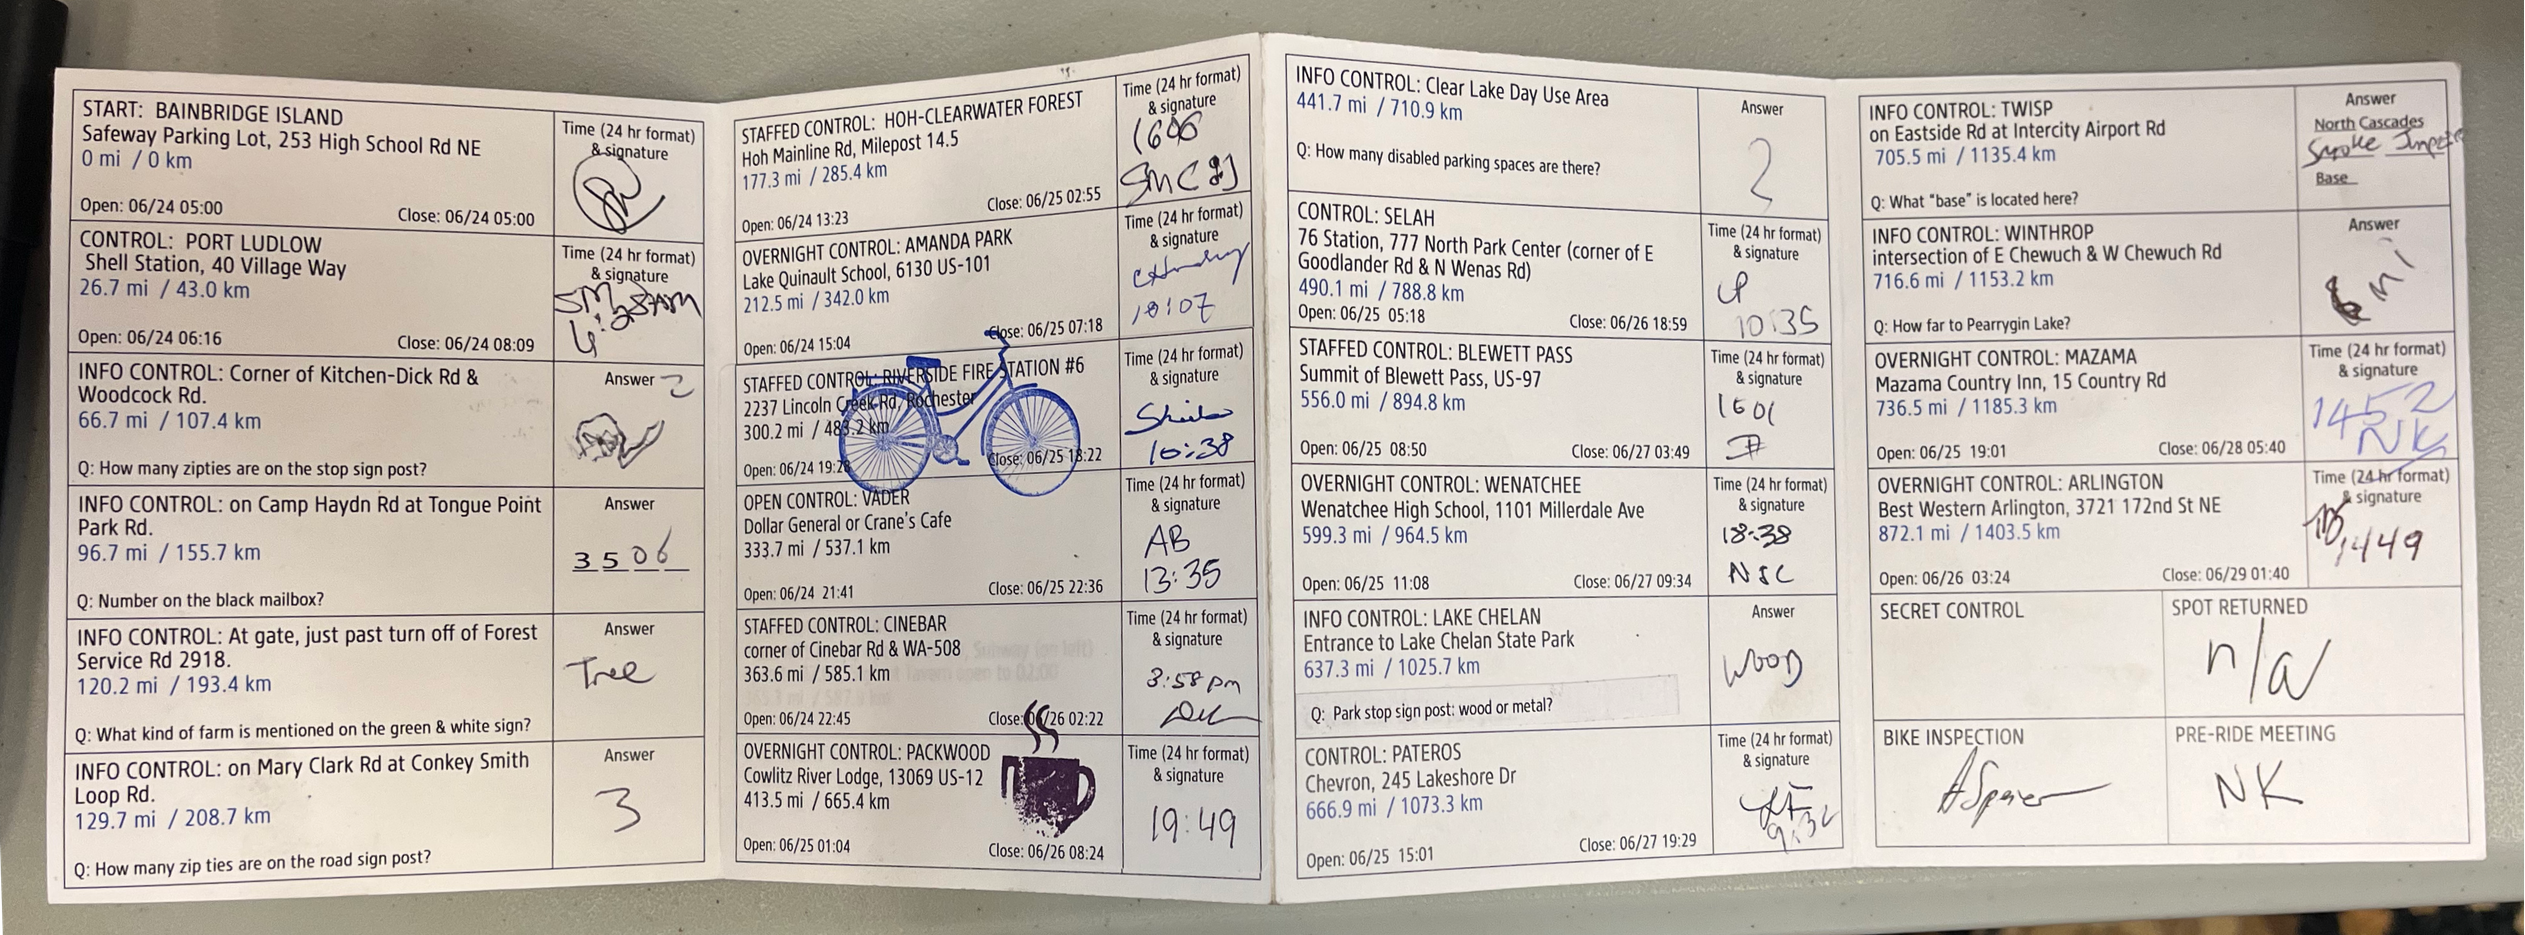 START: BAINBRIDGE ISLAND
Safeway Parking Lot, 253 High School Rd NE
0 mi / 0 km
Open: 06/24 05:00 Close: 06/24 05:00
Time (24 hr format)
& signature
CONTROL: PORT LUDLOW
Shell Station, 40 Village Way
26.7 mi / 43.0 km
Open: 06/24 06:16 Close: 06/24 08:09
Time (24 hr format)
& signature
INFO CONTROL: Corner of Kitchen-Dick Rd &
Woodcock Rd.
66.7 mi / 107.4 km
Q: How many zipties are on the stop sign post?
Answer 2
INFO CONTROL: on Camp Haydn Rd at Tongue Point
Park Rd.
96.7 mi / 155.7 km
Q: Number on the black mailbox?
Answer
3506
INFO CONTROL: At gate, just past turn off of Forest
Service Rd 2918.
120.2 mi / 193.4 km
Q: What kind of farm is mentioned on the green & white sign?
Answer
Tree
INFO CONTROL: on Mary Clark Rd at Conkey Smith
Loop Rd.
129.7 mi / 208.7 km
Q: How many zip ties are on the road sign post?
Answer
3
STAFFED CONTROL: HOH-CLEARWATER FOREST
Hoh Mainline Rd, Milepost 14.5
177.3 mi / 285.4 km
Open: 06/24 13:23 Close: 06/25 02:55
Time (24 hr format)
& signature
OVERNIGHT CONTROL: AMANDA PARK
Lake Quinault School, 6130 US-101
212.5 mi / 342.0 km
Open: 06/24 15:04 Close: 06/25 07:18
Time (24 hr format)
& signature
STAFFED CONTROL: RIVERSIDE FIRE STATION #6
2237 Lincoln Creek Rd, Rochester
300.2 mi / 483.2 km
Open: 06/24 19:28 Close: 06/25 18:22
Time (24 hr format)
& signature
10:38
OPEN CONTROL: VADER
Dollar General or Crane's Cafe
333.7 mi / 537.1 km
Open: 06/24 21:41 Close: 06/25 22:36
Time (24 hr format)
& signature
AB
13:35
STAFFED CONTROL: CINEBAR
corner of Cinebar Rd & WA-508
363.6 mi / 585.1 km
Open: 06/24 22:45 Close: 06/26 02:22
Time (24 hr format)
& signature
3:58 pm
OVERNIGHT CONTROL: PACKWOOD
Cowlitz River Lodge, 13069 US-12
413.5 mi / 665.4 km
Open: 06/25 01:04 Close: 06/26 08:24
Time (24 hr format)
& signature
19:49
INFO CONTROL: Clear Lake Day Use Area
441.7 mi / 710.9 km
Q: How many disabled parking spaces are there?
Answer
2
CONTROL: SELAH
76 Station, 777 North Park Center (corner of E
Goodlander Rd & N Wenas Rd)
490.1 mi / 788.8 km
Open: 06/25 05:18 Close: 06/26 18:59
Time (24 hr format)
& signature
10:35
STAFFED CONTROL: BLEWETT PASS
Summit of Blewett Pass, US-97
556.0 mi / 894.8 km
Open: 06/25 08:50 Close: 06/27 03:49
Time (24 hr format)
& signature
1601
OVERNIGHT CONTROL: WENATCHEE
Wenatchee High School, 1101 Millerdale Ave
599.3 mi / 964.5 km
Open: 06/25 11:08 Close: 06/27 09:34
Time (24 hr format)
& signature
18:38
NSC
INFO CONTROL: LAKE CHELAN
Entrance to Lake Chelan State Park
637.3 mi / 1025.7 km
Q: Park stop sign post: wood or metal?
Answer
WOOD
CONTROL: PATEROS
Chevron, 245 Lakeshore Dr
666.9 mi / 1073.3 km
Open: 06/25 15:01 Close: 06/27 19:29
Time (24 hr format)
& signature
INFO CONTROL: TWISP
on Eastside Rd at Intercity Airport Rd
705.5 mi / 1135.4 km
Q: What "base" is located here?
Answer
North Cascades
Smoke
Base
INFO CONTROL: WINTHROP
intersection of E Chewuch & W Chewuch Rd
716.6 mi / 1153.2 km
Q: How far to Pearrygin Lake?
Answer
OVERNIGHT CONTROL: MAZAMA
Mazama Country Inn, 15 Country Rd
736.5 mi / 1185.3 km
Open: 06/25 19:01 Close: 06/28 05:40
Time (24 hr format)
& signature
1452
NK
OVERNIGHT CONTROL: ARLINGTON
Best Western Arlington, 3721 172nd St NE
872.1 mi / 1403.5 km
Open: 06/26 03:24 Close: 06/29 01:40
Time (24 hr format)
& signature
1449
SECRET CONTROL
SPOT RETURNED
n/a
BIKE INSPECTION
PRE-RIDE MEETING
NK